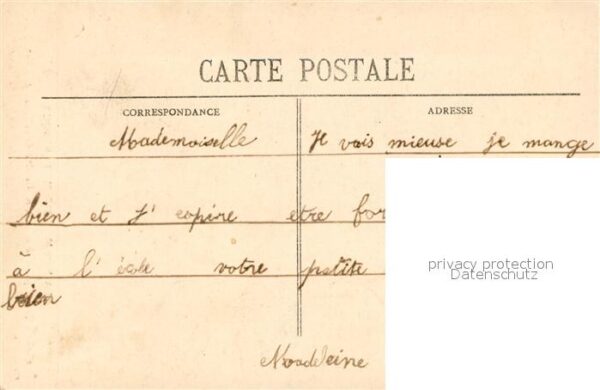 CARTE POSTALE
CORRESPONDANCE
ADRESSE
Mademoiselle Je vais mieuse je mange
bien et J'espire etre for
à l'école votre petite
bien
Madeleine
privacy protection
Datenschutz